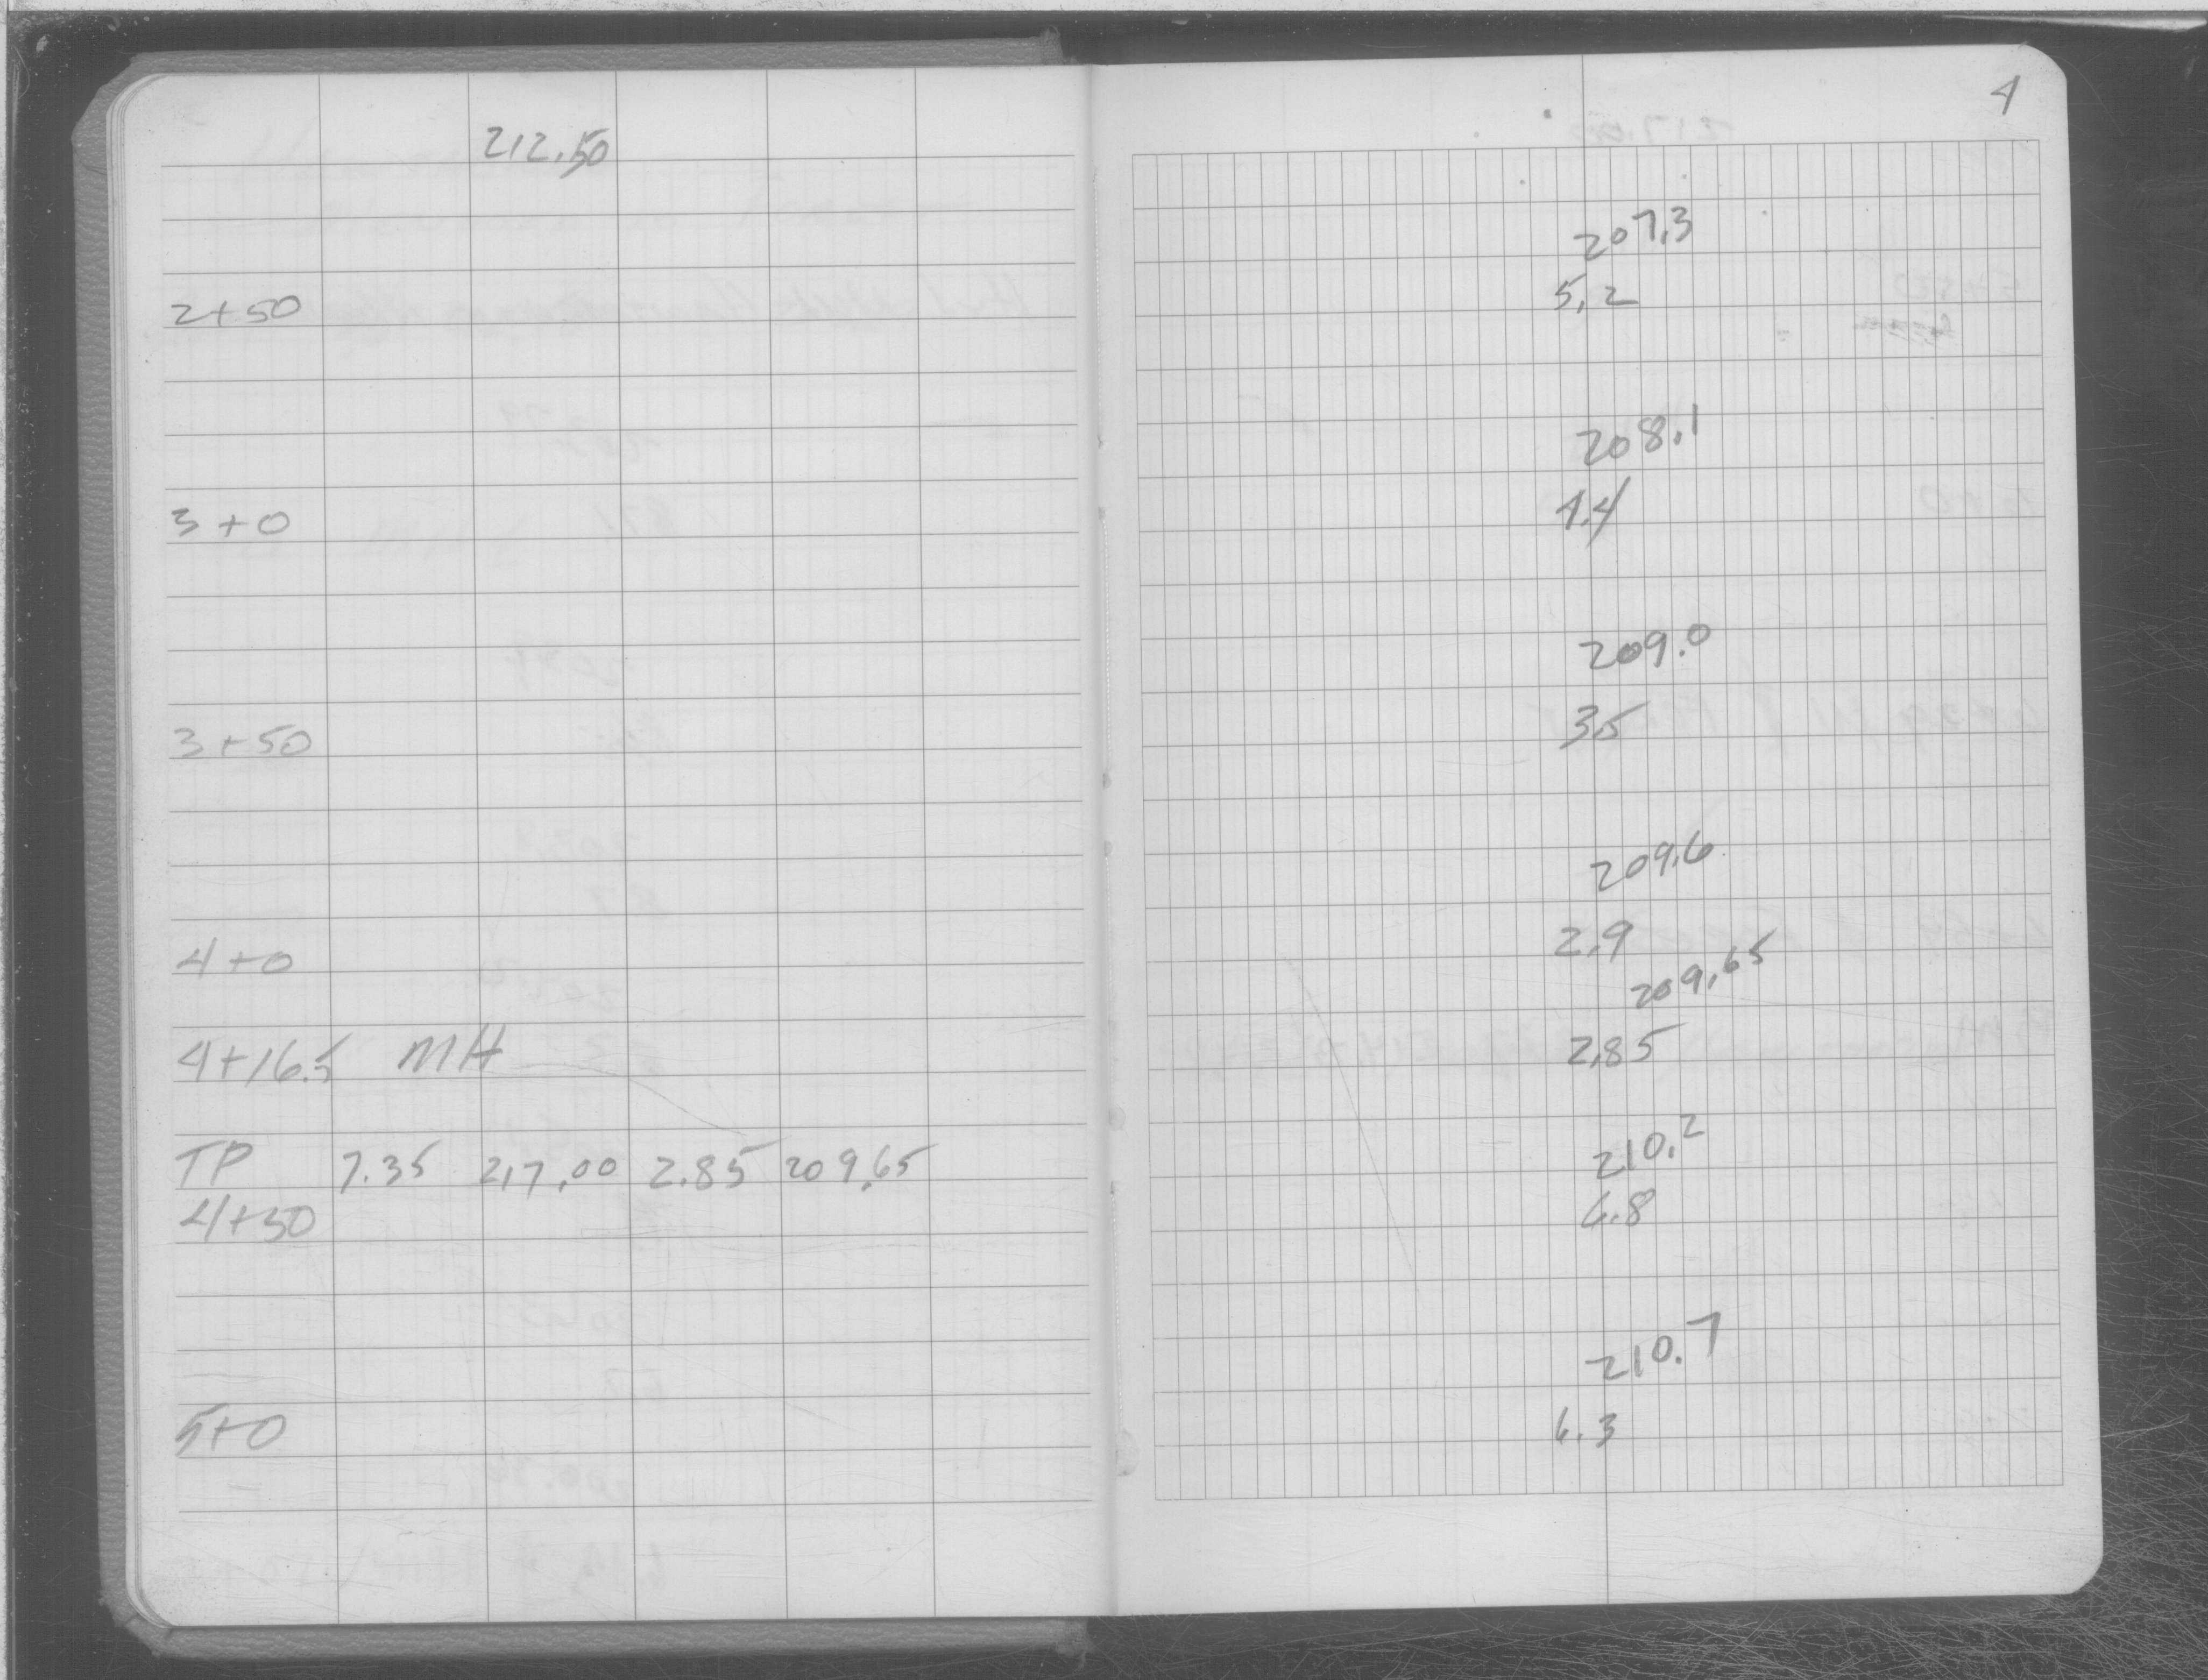 4
212.50
207.3
2+50 5.2
208.1
3+0 4.4
209.0
3+50 3.5
209.6
4+0 2.9
209.65
4+16.5 MH 2.85
210.2
TP 7.35 217.00 2.85 209.65
4+50 6.8
210.7
5+0 6.3